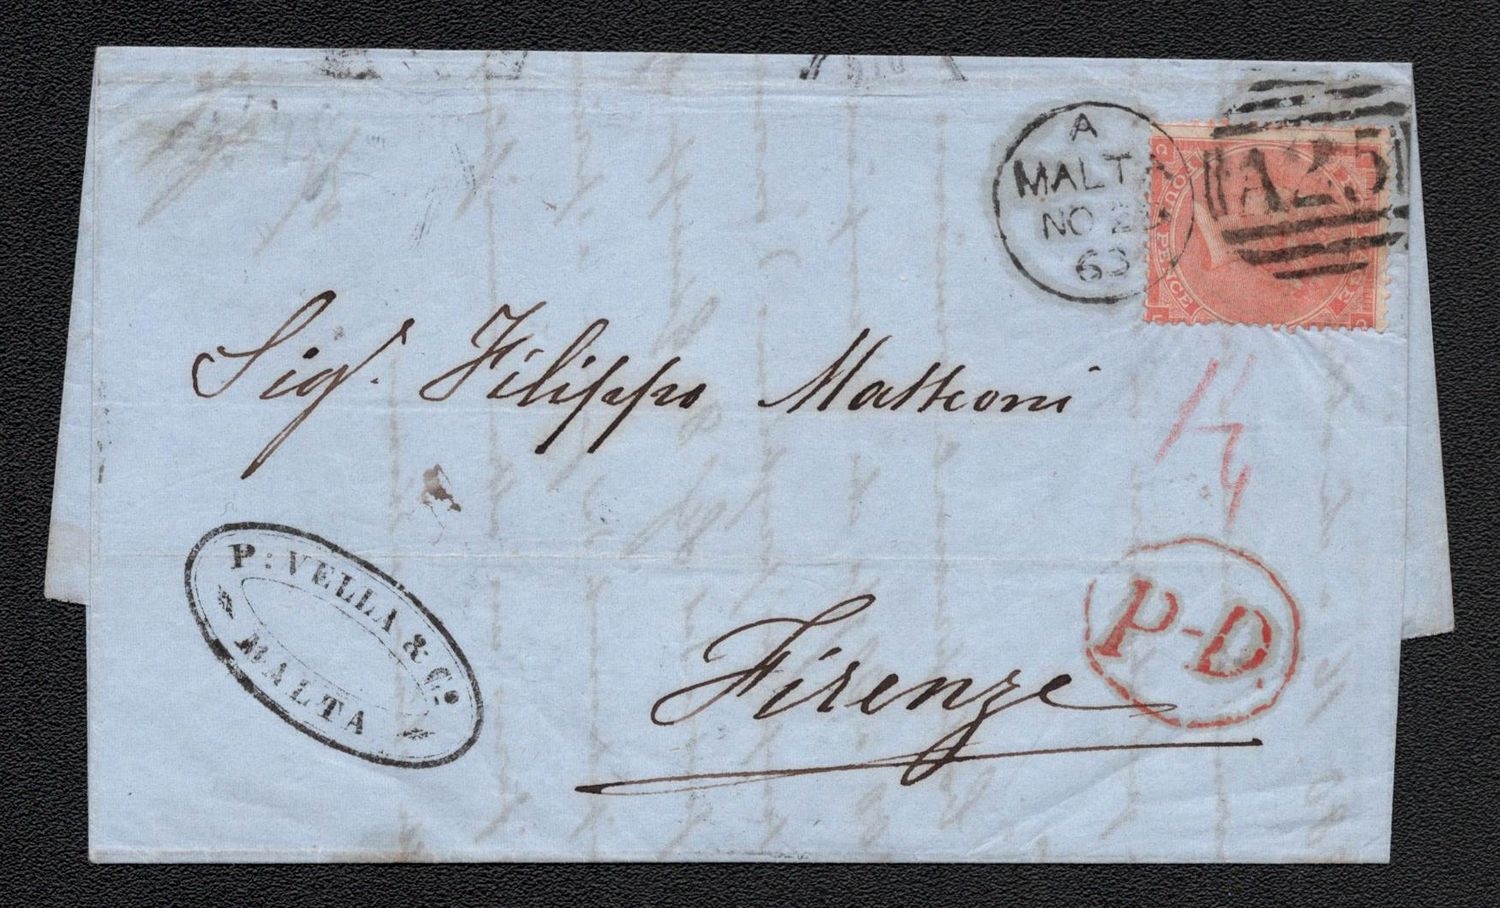 A
MALTA
NO
63
A25
FOUR PENCE
Sigr. Filippo Matteoni
P: VELLA & Co.
MALTA
P-D.
Firenze